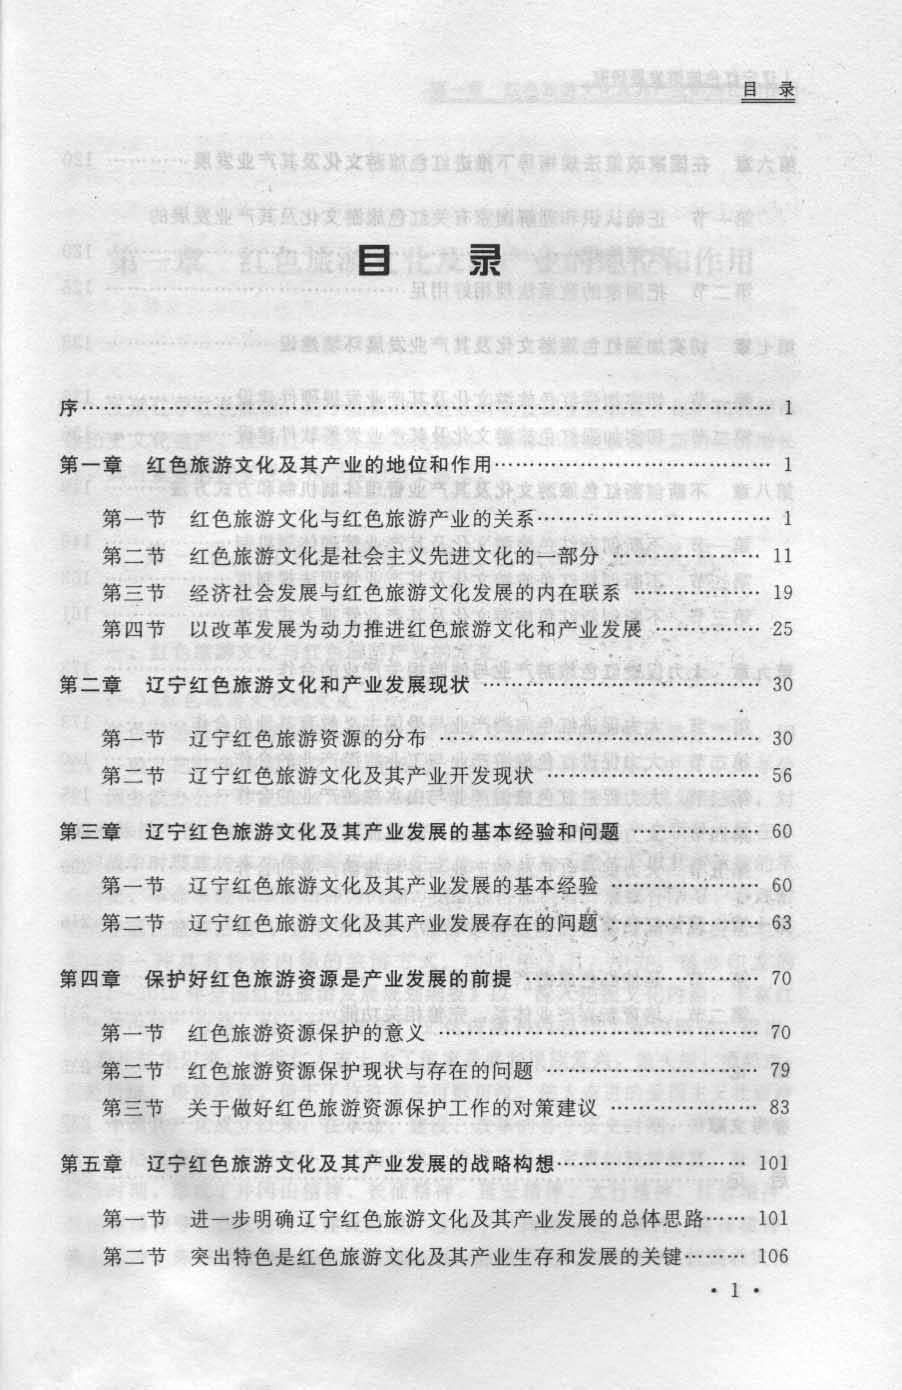 目 录
目 录
序…………………………………………………………………………………… 1
第一章 红色旅游文化及其产业的地位和作用………………………………… 1
第一节 红色旅游文化与红色旅游产业的关系…………………………… 1
第二节 红色旅游文化是社会主义先进文化的一部分 ………………… 11
第三节 经济社会发展与红色旅游文化发展的内在联系 ……………… 19
第四节 以改革发展为动力推进红色旅游文化和产业发展 …………… 25
第二章 辽宁红色旅游文化和产业发展现状 ………………………………… 30
第一节 辽宁红色旅游资源的分布 ……………………………………… 30
第二节 辽宁红色旅游文化及其产业开发现状 ………………………… 56
第三章 辽宁红色旅游文化及其产业发展的基本经验和问题 ……………… 60
第一节 辽宁红色旅游文化及其产业发展的基本经验 ………………… 60
第二节 辽宁红色旅游文化及其产业发展存在的问题 ………………… 63
第四章 保护好红色旅游资源是产业发展的前提 …………………………… 70
第一节 红色旅游资源保护的意义 ……………………………………… 70
第二节 红色旅游资源保护现状与存在的问题 ………………………… 79
第三节 关于做好红色旅游资源保护工作的对策建议 ………………… 83
第五章 辽宁红色旅游文化及其产业发展的战略构想……………………… 101
第一节 进一步明确辽宁红色旅游文化及其产业发展的总体思路…… 101
第二节 突出特色是红色旅游文化及其产业生存和发展的关键……… 106
· 1 ·